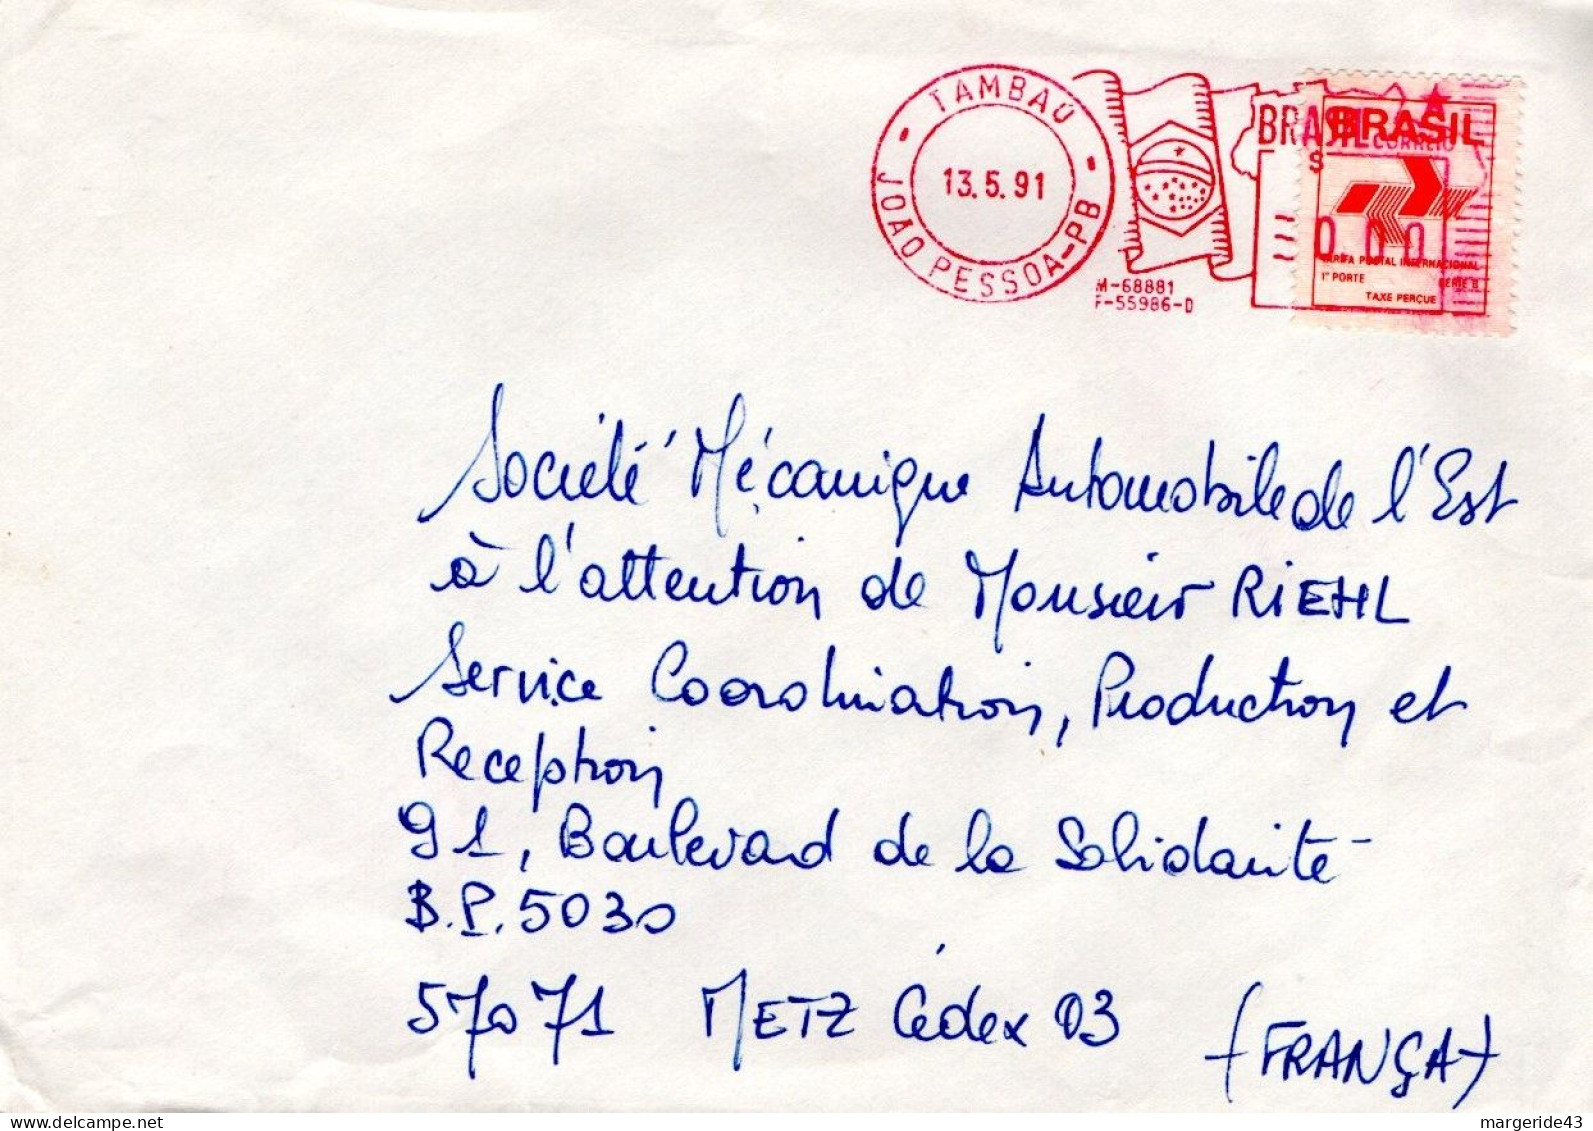 TAMBAÚ
13.5.91
JOAO PESSOA-PB
M-68881
F-55986-D
BRASIL
BRASIL
CORREIO
TARIFA POSTAL INTERNACIONAL
1º PORTE SÉRIE B
TAXE PERÇUE
Société Mécanique Automobile de l'Est
à l'attention de Monsieur RIEHL
Service Coordination, Production et
Reception
91, Boulevard de la Solidarité
B.P. 5030
57071 METZ Cédex 03
(FRANÇA)
delcampe.net
margeride43